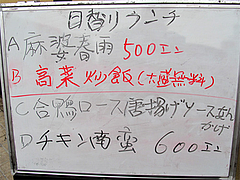 日替りランチ
A麻婆春雨 500エン
B 高菜炒飯(大盛無料)
C合鴨ロース唐揚げソース
かけ
Dチキン南蛮 600エン